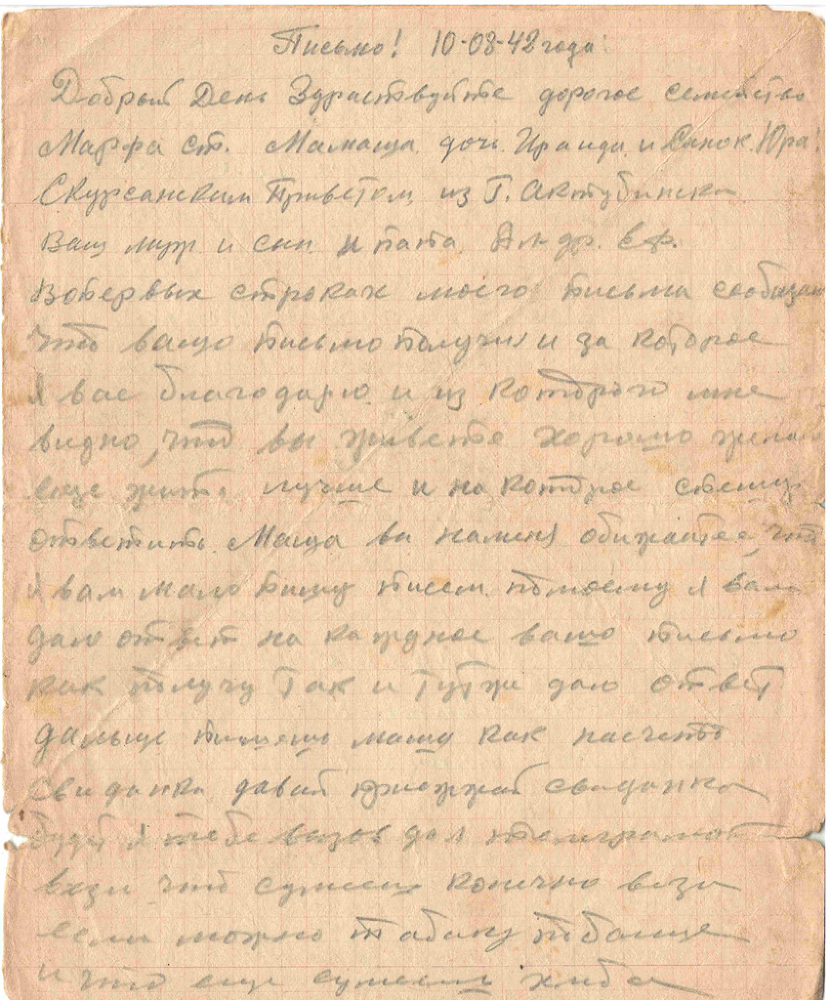 Письмо! 10-08-42 года:
Добрый День Здраствуйте дорогое семейство
Марфа ст. Мамаша дочь Ираида и Сынок Юра!
Скурсанским Приветом из Г. Актубинска
Ваш муж и сын и папа Ал-др. Еф.
Вопервых строках моего письма сообщаю
что вашо письмо получил и за которое
я вас благодарю и из которого мне
видно, что вы живете хорошо желаю
еще жить лучше и на которое спешу
ответить. Маша вы наменя обижаетес, что
я вам мало пишу писем помоему я вам
даю ответ на каждное вашо письмо
как получу Так и Тутже даю ответ
дальше пишешь маша как насчеть
свиданка давай приежжай свиданка
будет я тебе вызов дал телеграмой
вези что сумееш конечно вези
если можно табаку побольще
и что еще сумеешь хлеба